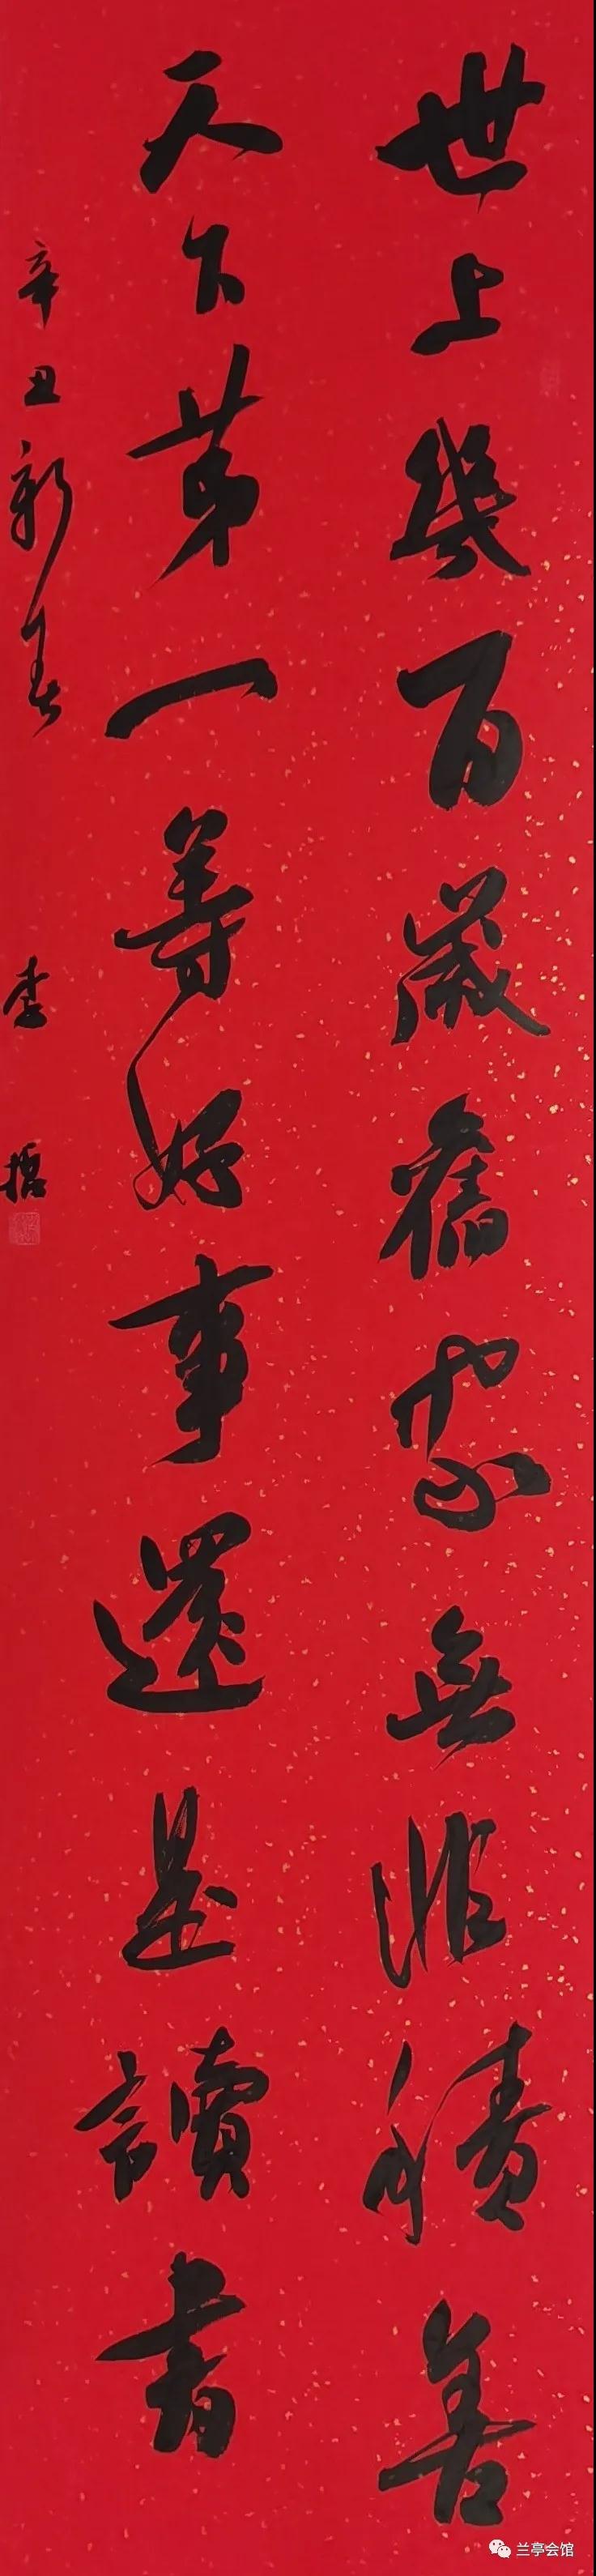 世上幾百歲舊家無非積善
天下第一等好事還是讀書
辛丑新春 李
兰亭会馆